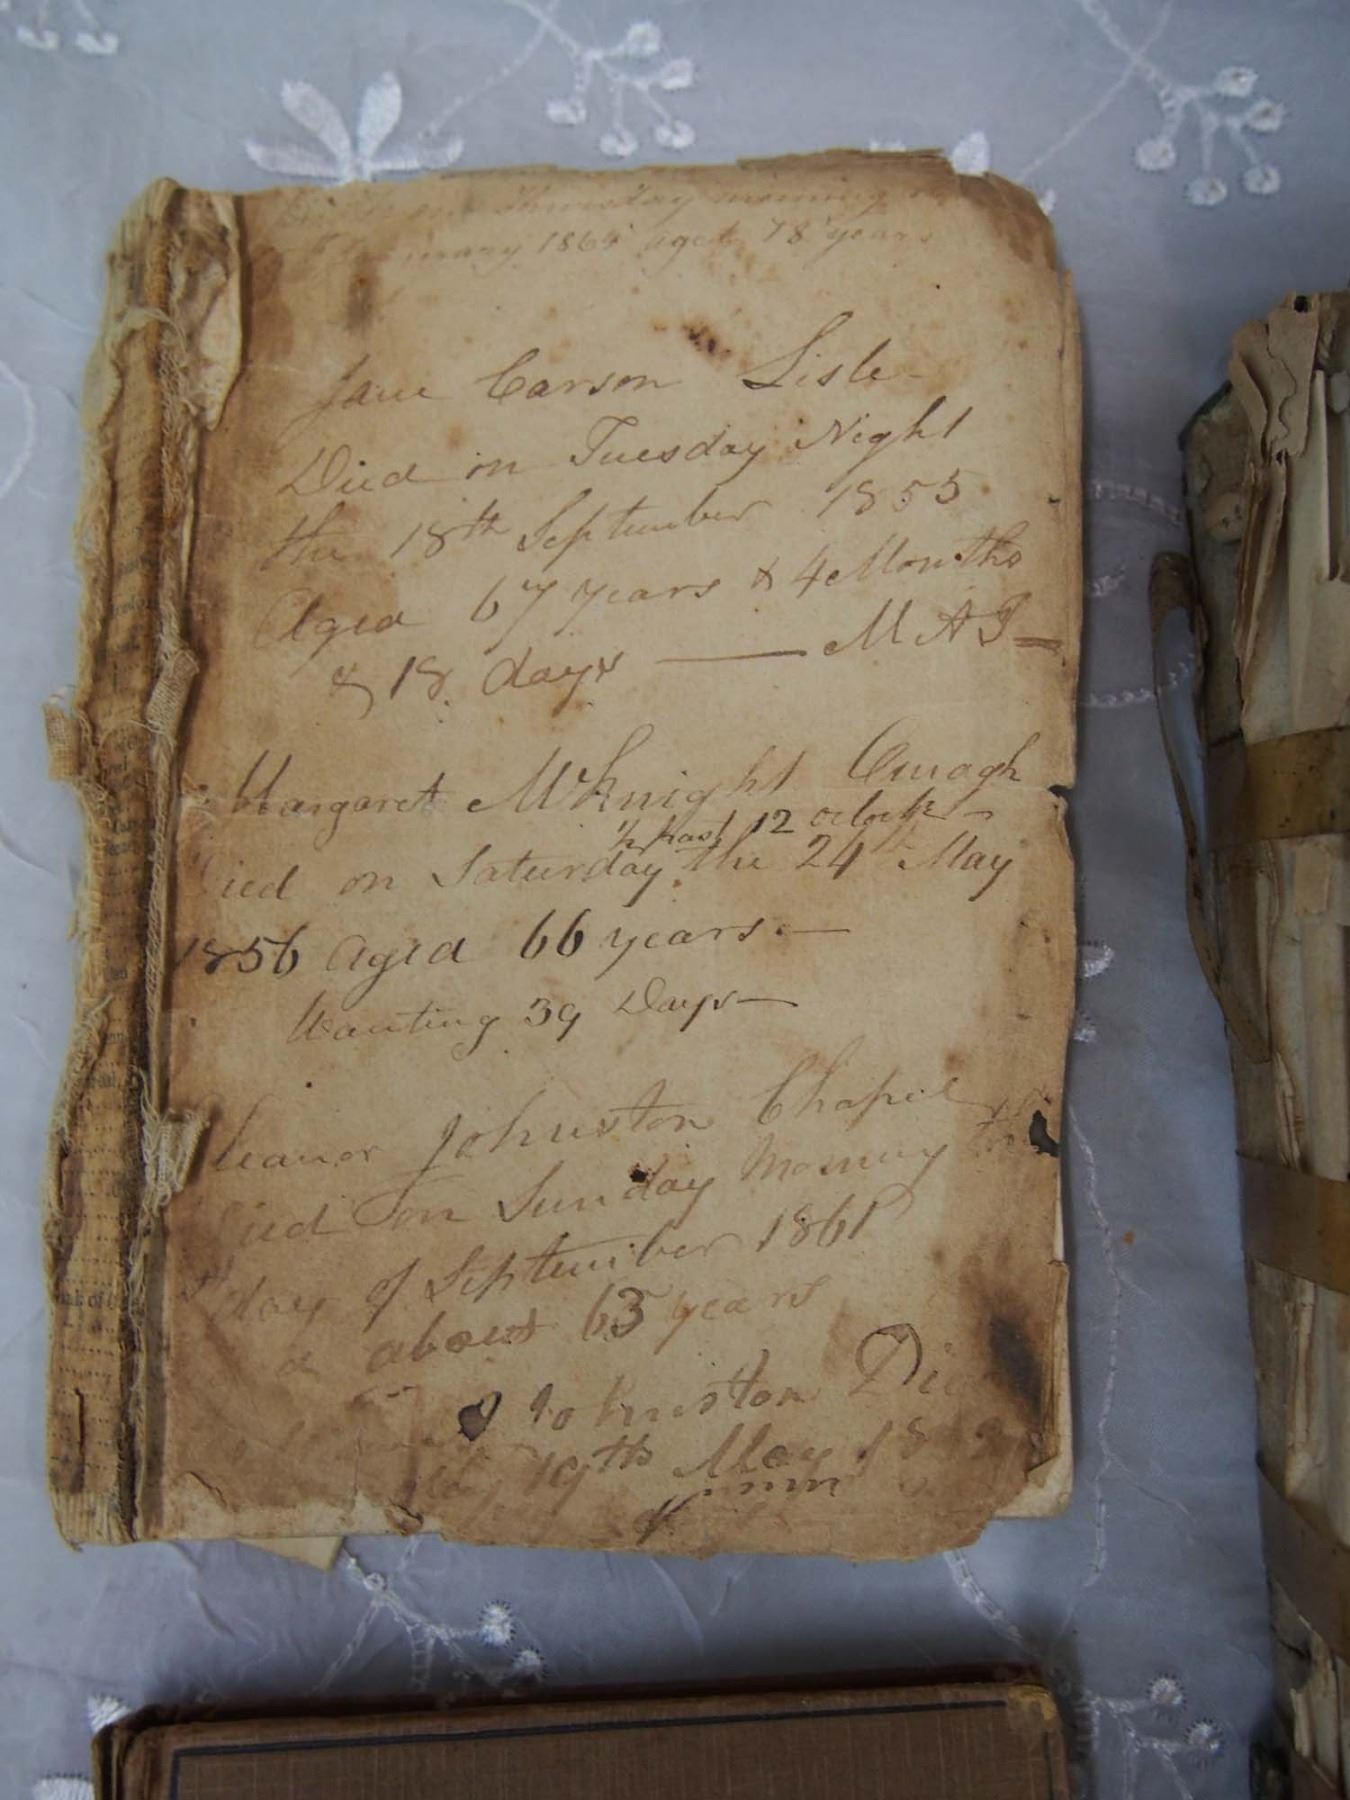 on Thursday morning
1864 aged 78 years
Jane Carson Lisle
Died on Tuesday Night
the 18th September 1855
Aged 67 years & 4 Months
& 18 days — M A J
Margaret McKnight Omagh
1/2 past 12 oclock
Died on Saturday the 24th May
1856 Aged 66 years —
Wanting 39 Days —
leanor Johnston Chapel
ied on Sunday Morning
day of September 1861
about 63 years
Johnston Di
19th May 18